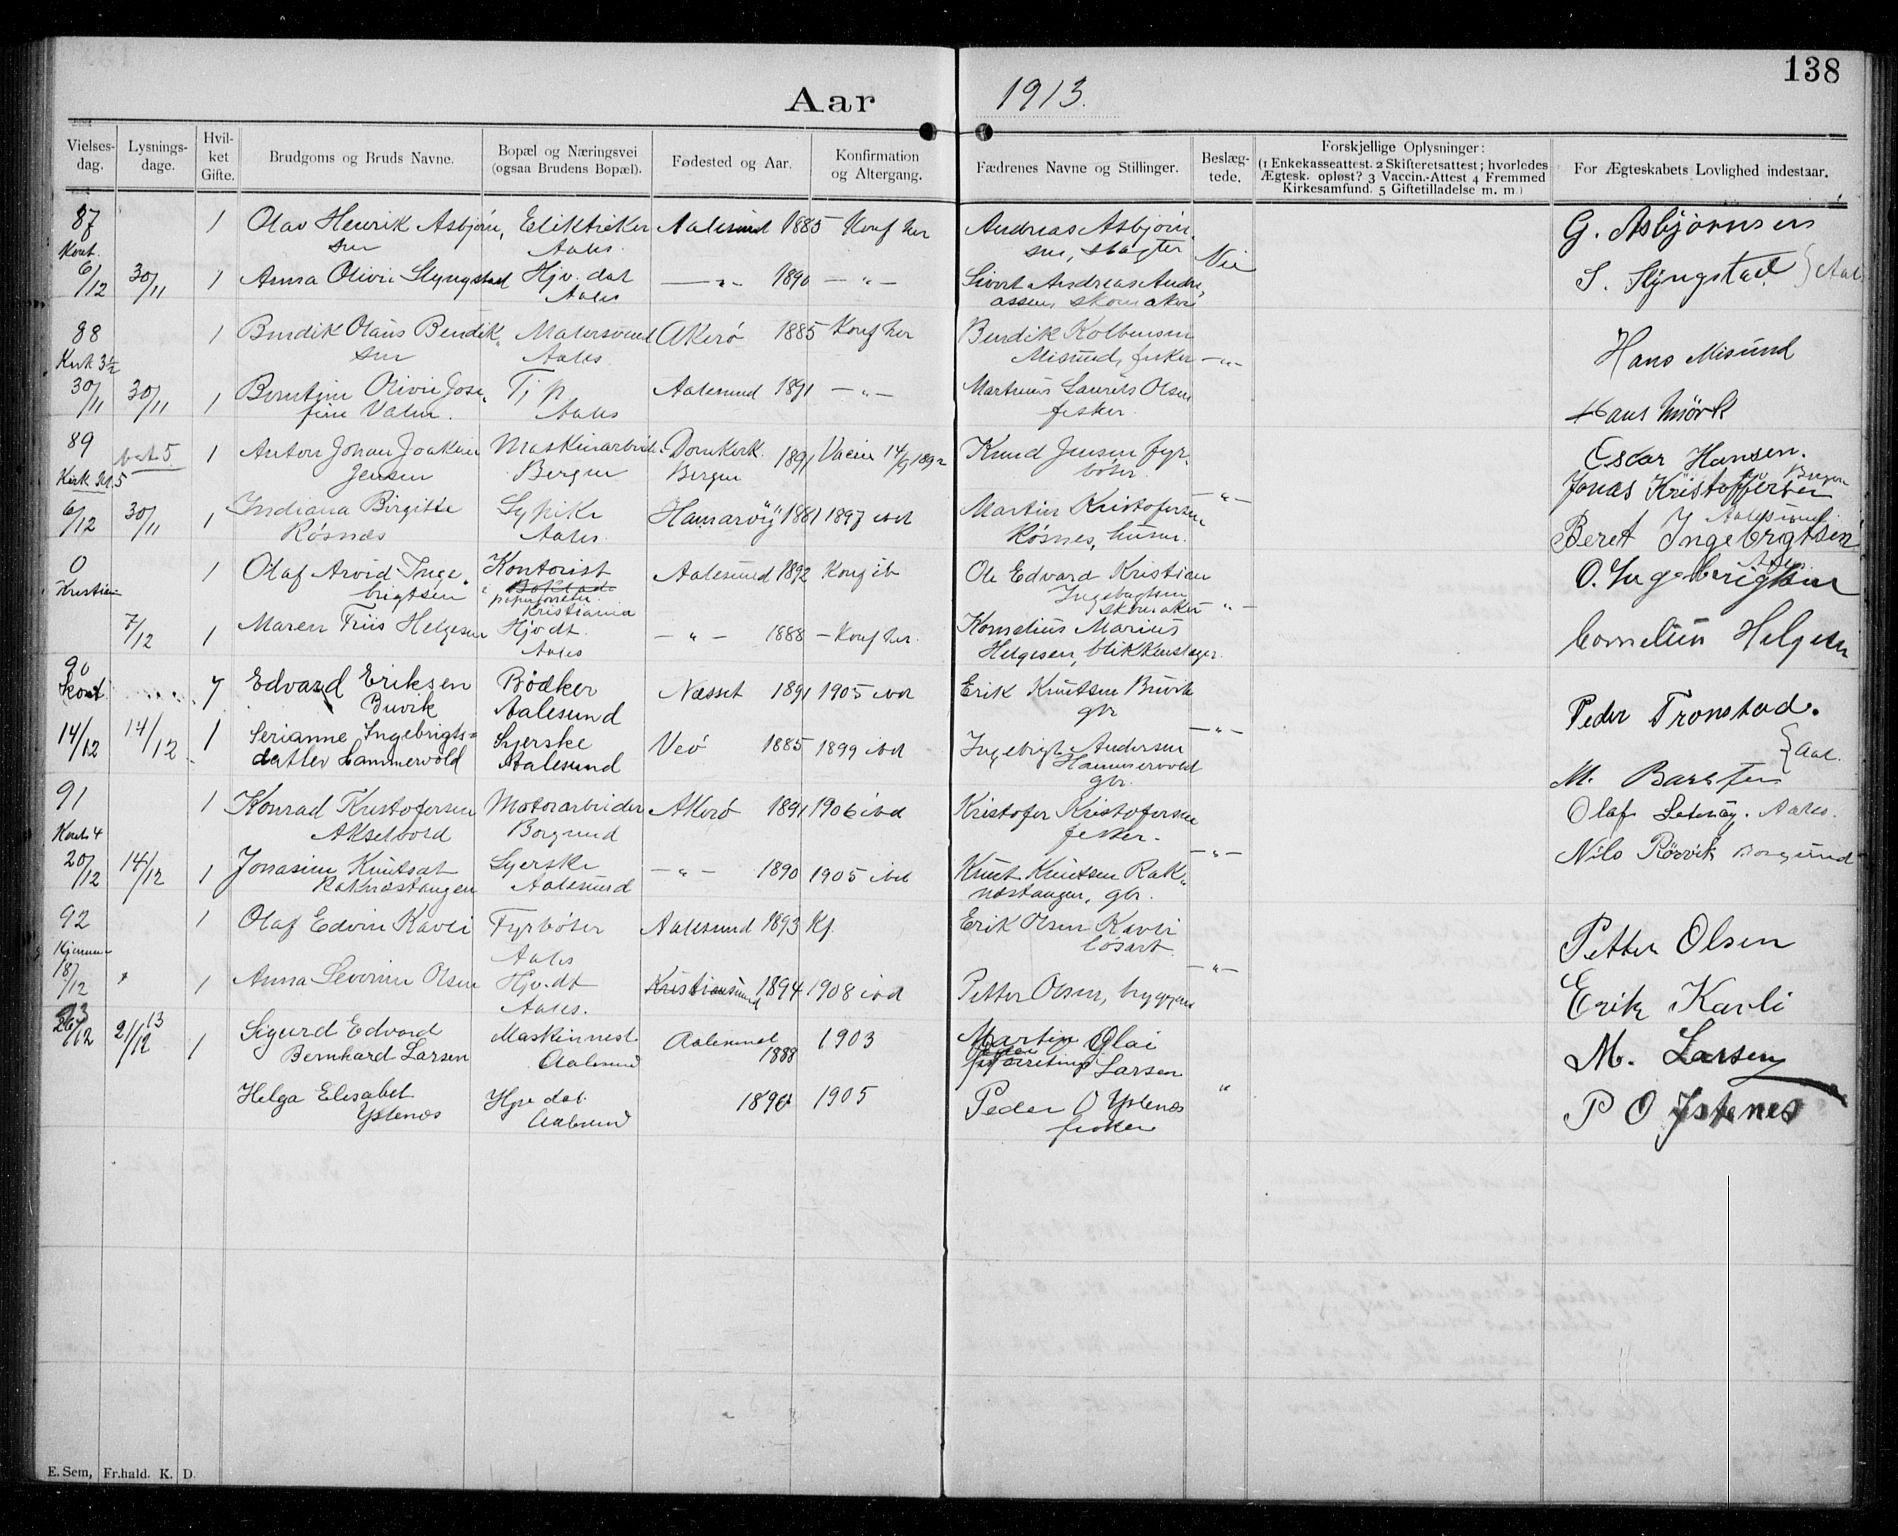 138
Aar 1913.
Vielses-dag. Lysnings-dage. Hvil-ket Gifte. Brudgoms og Bruds Navne. Bopæl og Næringsvei (ogsaa Brudens Bopæl). Fødested og Aar. Konfirmation og Altergang. Fædrenes Navne og Stillinger. Beslæg-tede. Forskjellige Oplysninger: (1 Enkekasseattest. 2 Skifteretsattest; hvorledes Ægtesk. opløst? 3 Vaccin.-Attest 4 Fremmed Kirkesamfund. 5 Giftetilladelse m. m.) For Ægteskabets Lovlighed indestaar.
87 1 Olav Henrik Asbjørn, Elektriker Aalesund 1885 Konf her Andreas Asbjørn, G. Asbjørnsen
Kont. sen Aales. sen, slagter Nei
6/12 30/11 1 Anna Olivie Slyngstad Hjv. dat — " — 1890 — " — Sivert Andreas Andre, S. Slyngstad } Aal
Aales assen, skomaker
88 1 Bendik Olaus Bendik, Malersvend Akerø 1885 Konf her Bendik Kolbensen Hans Misund
Kirk 3½ sen Aales Misund, fisker — " —
30/11 30/11 1 Berntine Olivie Jose, Tjp Aalesund 1891 — " — Martinus Laurits Olsen Hans Mørk
fine Valen. Aales fisker.
89 bet 5. 1 Anton Johan Joakim Maskinarbeid. Domkirk. 1891 Vacin 14/9 1892 Knud Jensen fyr- Oscar Hansen. Bergen
Kirk kl. 5 Jensen Bergen Bergen bøter. Jonas Kristoffersen
6/12 30/11 1 Indiana Birgitte Sypike Hamarøy 1881 1897 ibd Martin Kristofersen — " — Aalesund
Røsnes Aales. Røsnes, husm. Beret Ingebrigtsen
0 1 Olaf Arvid Inge, Kontorist Aalesund 1892 Konf ib Ole Edvard Kristian O. Ingebrigtsen
Kristian brigtsen Kristiania Ingebrigtsen skomaker — " —
7/12 1 Maren Friis Helgesen Hjv dt. — " — 1888 — Konf her. Kornelius Marius Cornelius Helgesen
Aales Helgesen, blikkenslager.
90 Edvard Eriksen Bødker Næsset 1891 1905 ibd Erik Knutsen Buvik Peder Tronstad.
Buvik Aalesund gbr — " — } Aal.
14/12 14/12 1 Serianne Ingebrigts= Syerske Veø 1885 1899 ibd Ingebrigt Andersen
datter Hammervold Aalesund Hammervold gbr.
91 1 Konrad Kristofersen Motorarbeider Akerø 1891 1906 ibd Kristofer Kristofersen Olaf Aales.
Kont 4 Akselvold Borgund fisker.
20/12 14/12 1 Jonasine Knutsdt Syerske — " — 1890 1905 ibd Knut Knutsen Rak- — " — Nils Røsvik Borgund
Raknæstangen Aalesund næstangen, gbr.
92 1 Olaf Edvin Kavli Fyrbøter Aalesund 1893 Kf. Erik Olsen Kavli Petter Olsen
Hjemme Aales løsarb.
18/12 " 1 Anna Severine Olsen Hjv. dt Kristiansund 1894 1908 ibd Petter Olsen, bryggem — " — Erik Kavli
Aales.
93
26/12 21/12 13 1 Sigurd Edvard Maskinmest. Aalesund 1888 1903 Martin Olai M. Larsen
Bernhard Larsen Aalesund Larsen
Helga Elisabet Hjv dat. 1890 1905 Peder O Ystenæs " P O Ystenes
Ystenæs Aalesund fisker
E. Sem, Fr.hald. K. D.